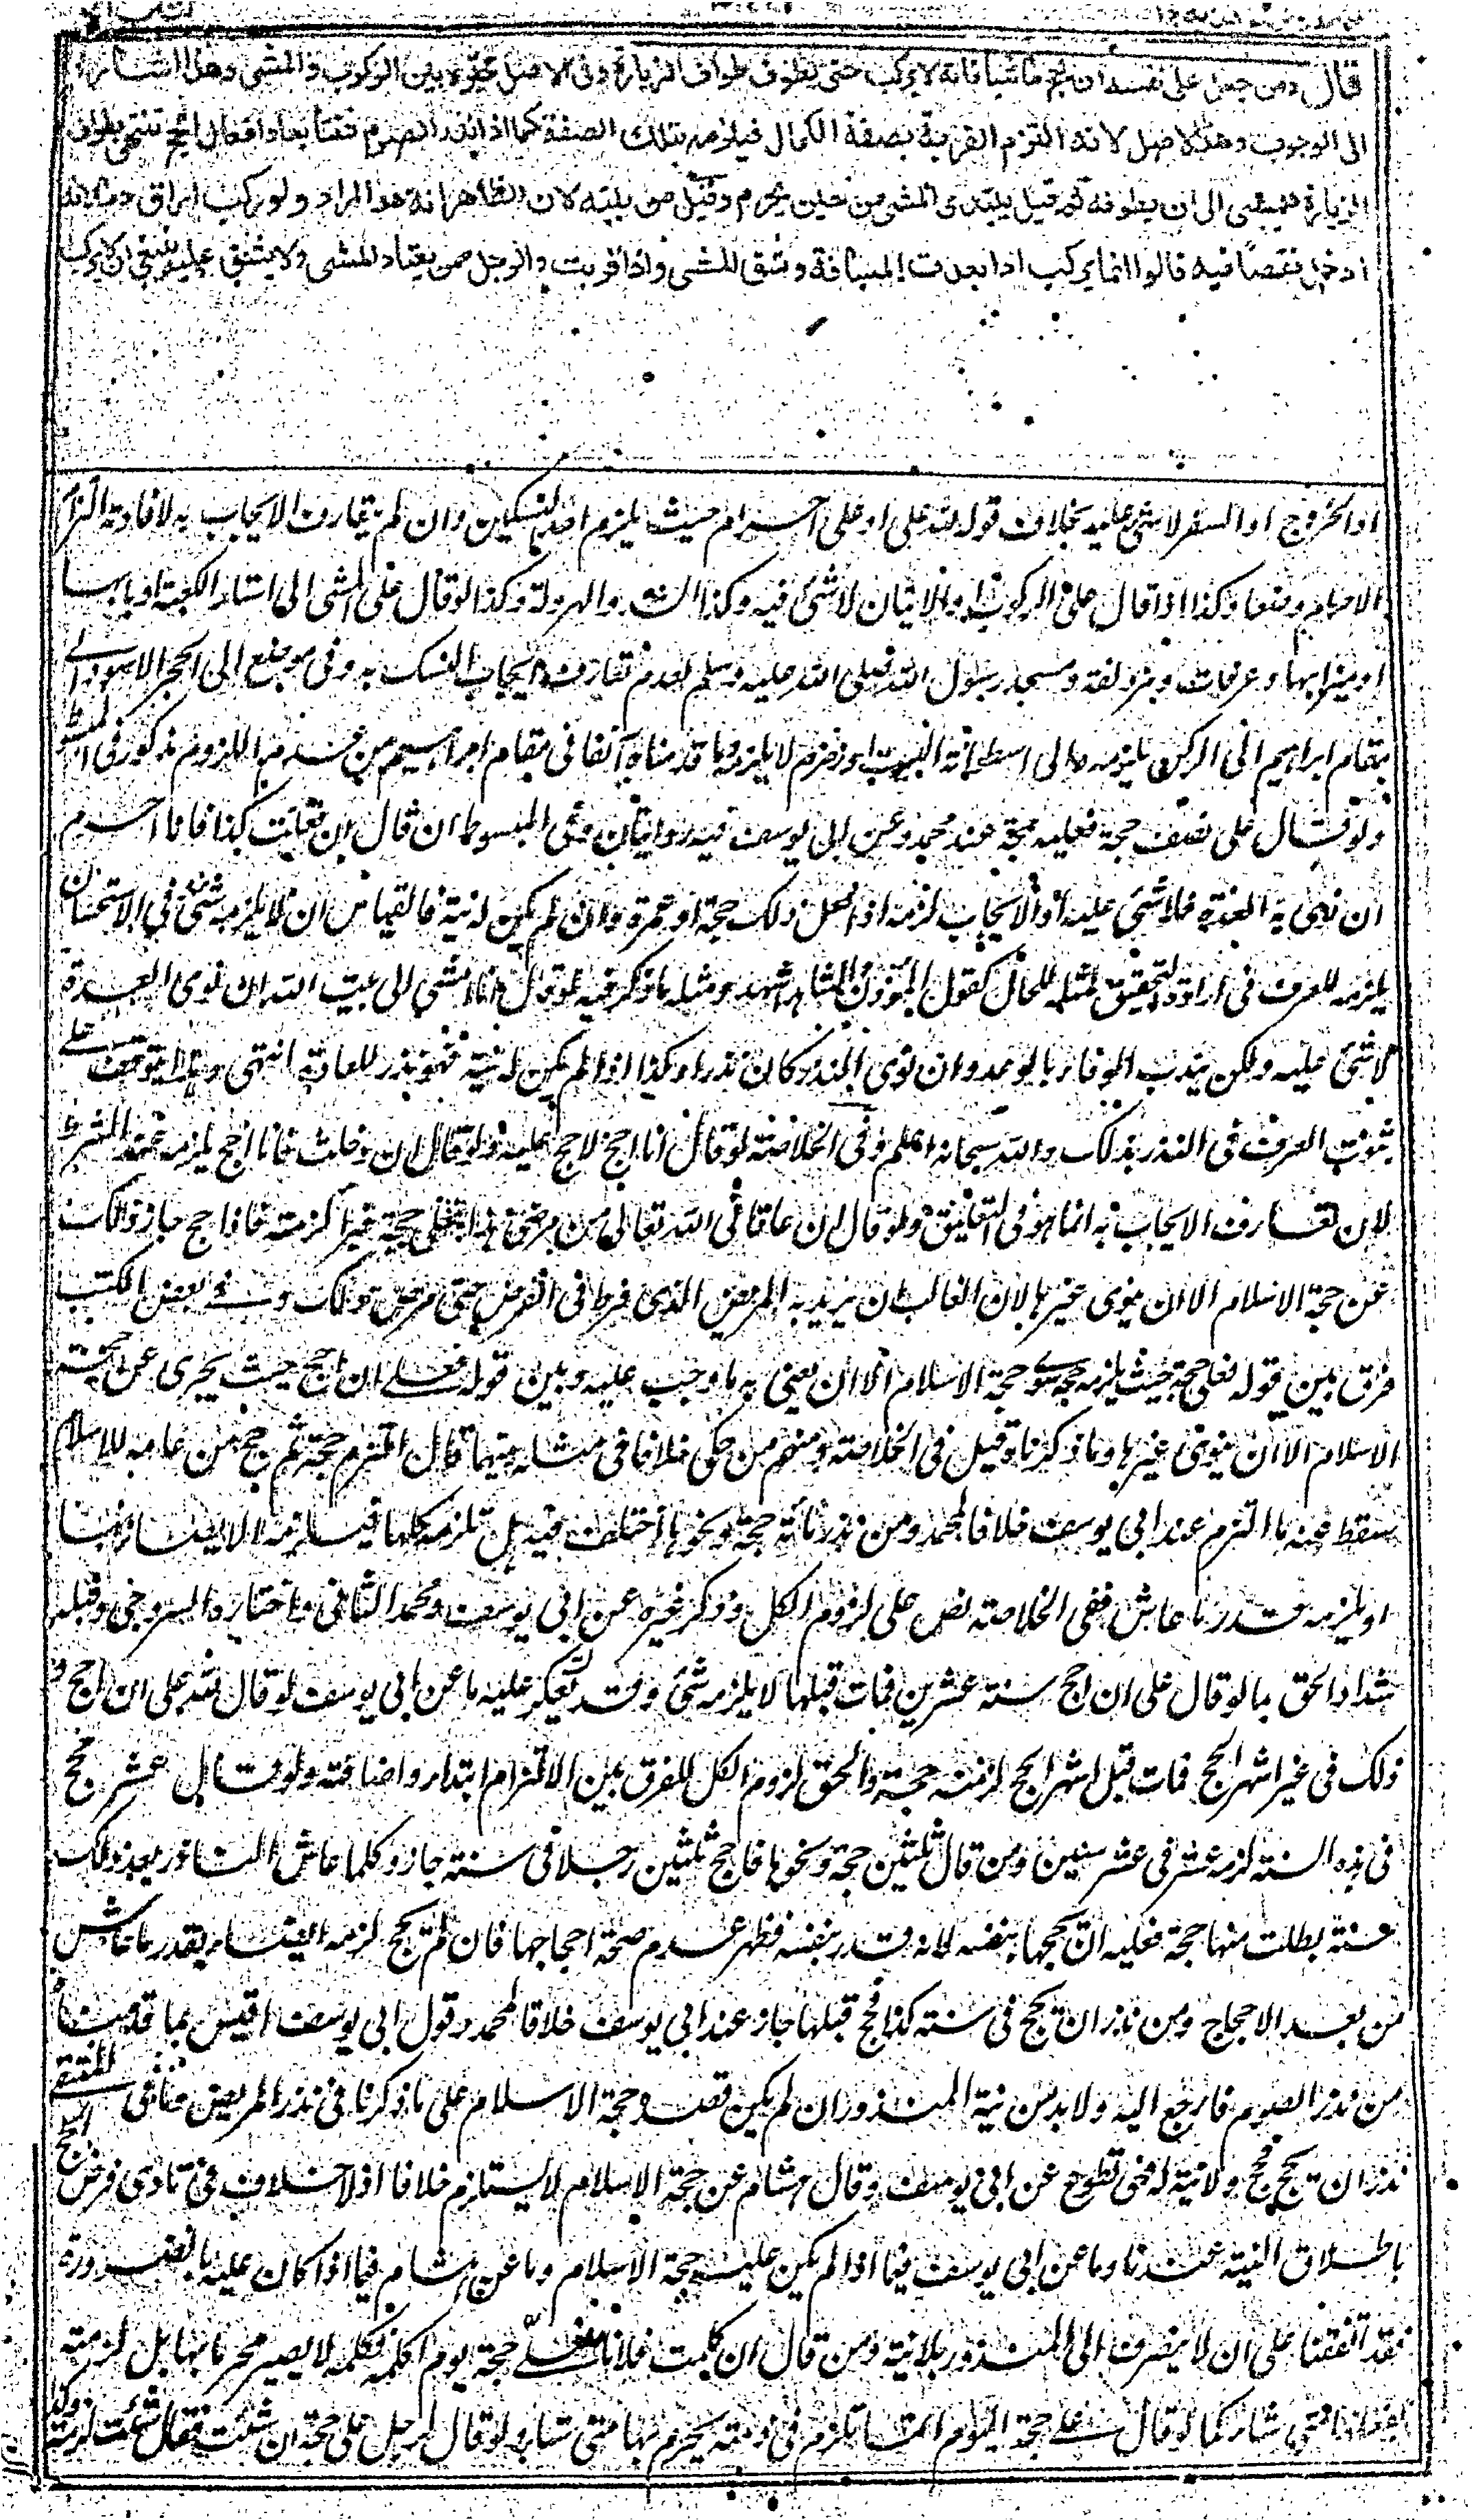 قال ومن جعل على نفسه ان يحج ماشيا فانه لا يركب حتى يطوف طواف الزيارة وفى الاصل خيره بين الركوب والمشى وهذا اشارة
الى الوجوب وهو الاصل لانه التزم القربة بصفة الكمال فيلزمه بتلك الصفة كما اذا نذر الصوم متتابعا وافعال الحج تنتهى بطواف
الزيارة فيمشى الى ان يطوفه ثم قيل يبتدئ المشى من حين يحرم وقيل من بيته لان الظاهر انه هو المراد ولو ركب اراق دما لانه
ادخل نقصا فيه قالوا انما يركب اذا بعدت المسافة وشق المشى واذا قربت والرجل ممن يعتاد المشى ولا يشق عليه ينبغى ان لا يركب
او الخروج او السفر لا شئ عليه بخلاف قوله لله على او على احرام حيث يلزمه احد النسكين وان لم يتعارف الايجاب به لافادته التزام
الاحرام وضعا وكذا اذا قال على الركوب او الاتيان لا شئ فيه وكذا الشد والهرولة وكذا لو قال على المشى الى استار الكعبة او بابها
او ميزابها وعرفات ومزدلفة ومسجد رسول الله صلى الله عليه وسلم لعدم تعارف ايجاب النسك به وفى موضع الى الحجر الاسود او الى
مقام ابراهيم الى الركن يلزمه والى اسطوانة البيت او زمزم لا يلزمه وما قدمناه آنفا فى مقام ابراهيم من عدم اللزوم مذكور فى المبسوط
ولو قال على نصف حجة فعليه حجة عند محمد وعن ابى يوسف فيه روايتان وفى المبسوط ان قال ان فعلت كذا فانا احرم
ان نوى به العدة فلا شئ عليه او الايجاب لزمه اذا فعل ذلك حجة او عمرة وان لم يكن له نية فالقياس ان لا يلزمه شئ وفى الاستحسان
يلزمه للعرف فى ارادة التحقيق بمثله للحال كقول المؤذن والشاهد اشهد ومثله ما ذكر فيه لو قال انا امشى الى بيت الله ان نوى العدة
لا شئ عليه ولكن يندب الوفاء بالوعد وان نوى النذر كان نذرا وكذا اذا لم يكن له نية فهو نذر للعادة انتهى وهذا يتوقف على
ثبوت العرف فى النذر بذلك والله سبحانه اعلم وفى الخلاصة لو قال انا احج لا حج عليه ولو قال ان دخلت فانا احج يلزمه عند الشرط
لان تعارف الايجاب به انما هو فى التعليق ولو قال ان عافانى الله تعالى من مرضى هذا فعلى حجة فبرأ لزمته فاذا حج جاز ذلك
عن حجة الاسلام الا ان ينوى غيرها لان الغالب ان يريد به المريض الذى فرط فى الفرض حتى مرض ذلك وفى بعض الكتب
فرق بين قوله فعلى حجة حيث يلزمه حجة سوى حجة الاسلام الا ان يعنى به ما وجب عليه وبين قوله فعلى ان احج حيث يجزى عن حجة
الاسلام الا ان ينوى غيرها وما ذكرناه قيل فى الخلاصة ومنهم من حكى خلافا فى مسئلة بينهما قال التزم حجة ثم حج من عامه للاسلام
سقط عنه ما التزم عند ابى يوسف خلافا لمحمد ومن نذر مائة حجة ونحوها اختلف فيه هل تلزمه كلها فيلزمه الايصاء بها
او يلزمه قدر ما عاش ففى الخلاصة نص على لزوم الكل وذكر غيره عن ابى يوسف ومحمد الثانى واختاره السروجى
على ان احج سنة عشرين فمات قبلها لا يلزمه شئ وقد يعكر عليه ما عن ابى يوسف لو قال لله على ان احج
ذلك فى غير اشهر الحج فمات قبل اشهر الحج لزمته حجة والحق لزوم الكل للفرق بين الالتزام ابتداء واضافته ولو قال عشر حجج
فى هذه السنة لزمه عشر فى عشر سنين ومن قال ثلثين حجة ونحوها فاحج ثلثين رجلا فى سنة جاز وكلما عاش الناذر بعد ذلك
سنة بطلت منها حجة فعليه ان يحجها بنفسه لانه قدر بنفسه فظهر عدم صحة احجاجها فان لم يحج لزمه الايصاء بقدر ما عاش
من بعد الاحجاج ومن نذر ان يحج فى سنة كذا فحج قبلها جاز عند ابى يوسف خلافا لمحمد وقول ابى يوسف اقيس بما قدمناه
من نذر الصوم فارجع اليه ولا بد من نية المنذور ان لم يكن قصد حجة الاسلام على ما ذكرنا فى نذر المريض فما فى المنتقى
نذر ان يحج فحج ولا نية له فهى تطوع عن ابى يوسف وقال هشام عن حجة الاسلام لا يستلزم خلافا اذ لا خلاف فى تأدى فرض الحج
باطلاق النية عندنا وما عن ابى يوسف فيما اذا لم يكن عليه حجة الاسلام وما عن هشام فيما اذا كان عليه بالضرورة
فقد اتفقنا على ان لا ينصرف الى المنذور بلا نية ومن قال ان كلمت فلانا فعلى حجة يوم اكلمه فكلمه لا يصير محرما بها بل لزمته
يفعلها متى شاء كما لو قال على حجة اليوم انما تلزم فى ذمته يحرم بها متى شاء ولو قال لرجل على حجة ان شئت فقال شئت لزمته وكذا